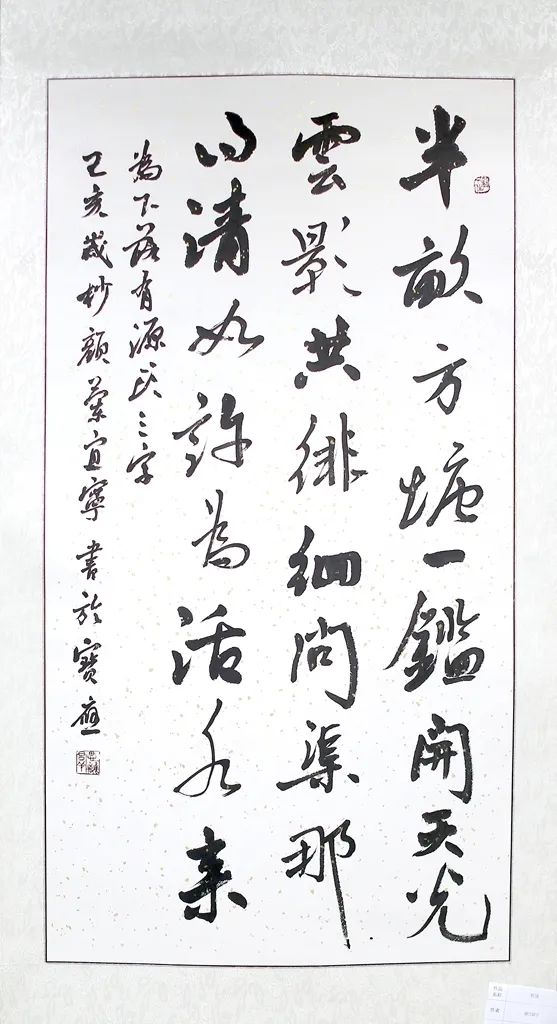 半畝方塘一鑑開天光
雲影共徘徊問渠那
得清如許為活水來
為下落有源頭三字
己亥歲杪顏宜寧書於寶應
作品
名称
书法
作者